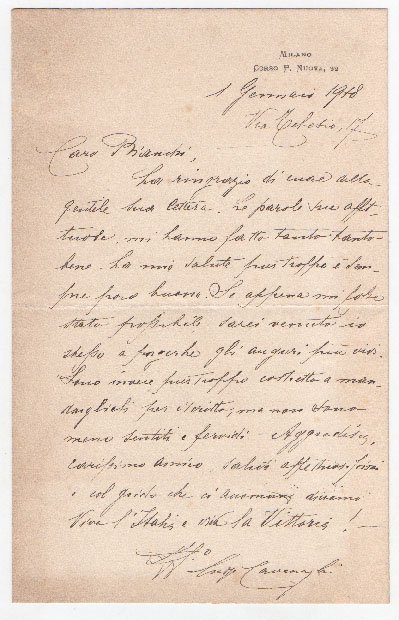 MILANO
CORSO P. NUOVA, 22
1 Gennaio 1918
Via Telesio, 17
Caro Bianchi,
La ringrazio di cuore della
gentile Sua lettera. Le parole Sue affet-
tuose, mi hanno fatto tanto tanto
bene. La mia salute purtroppo è sem-
pre poco buona. Se appena mi fosse
stato possibile sarei venuto io
stesso a porgerle gli auguri più vivi.
Sono invece purtroppo costretto a man-
darglieli per iscritto, ma non sono
meno sentiti e fervidi. Aggradisca,
carissimo amico, saluti affettuosissimi
e col grido che ci accomuna diciamo
Viva l'Italia e viva la Vittoria!
Aff.o